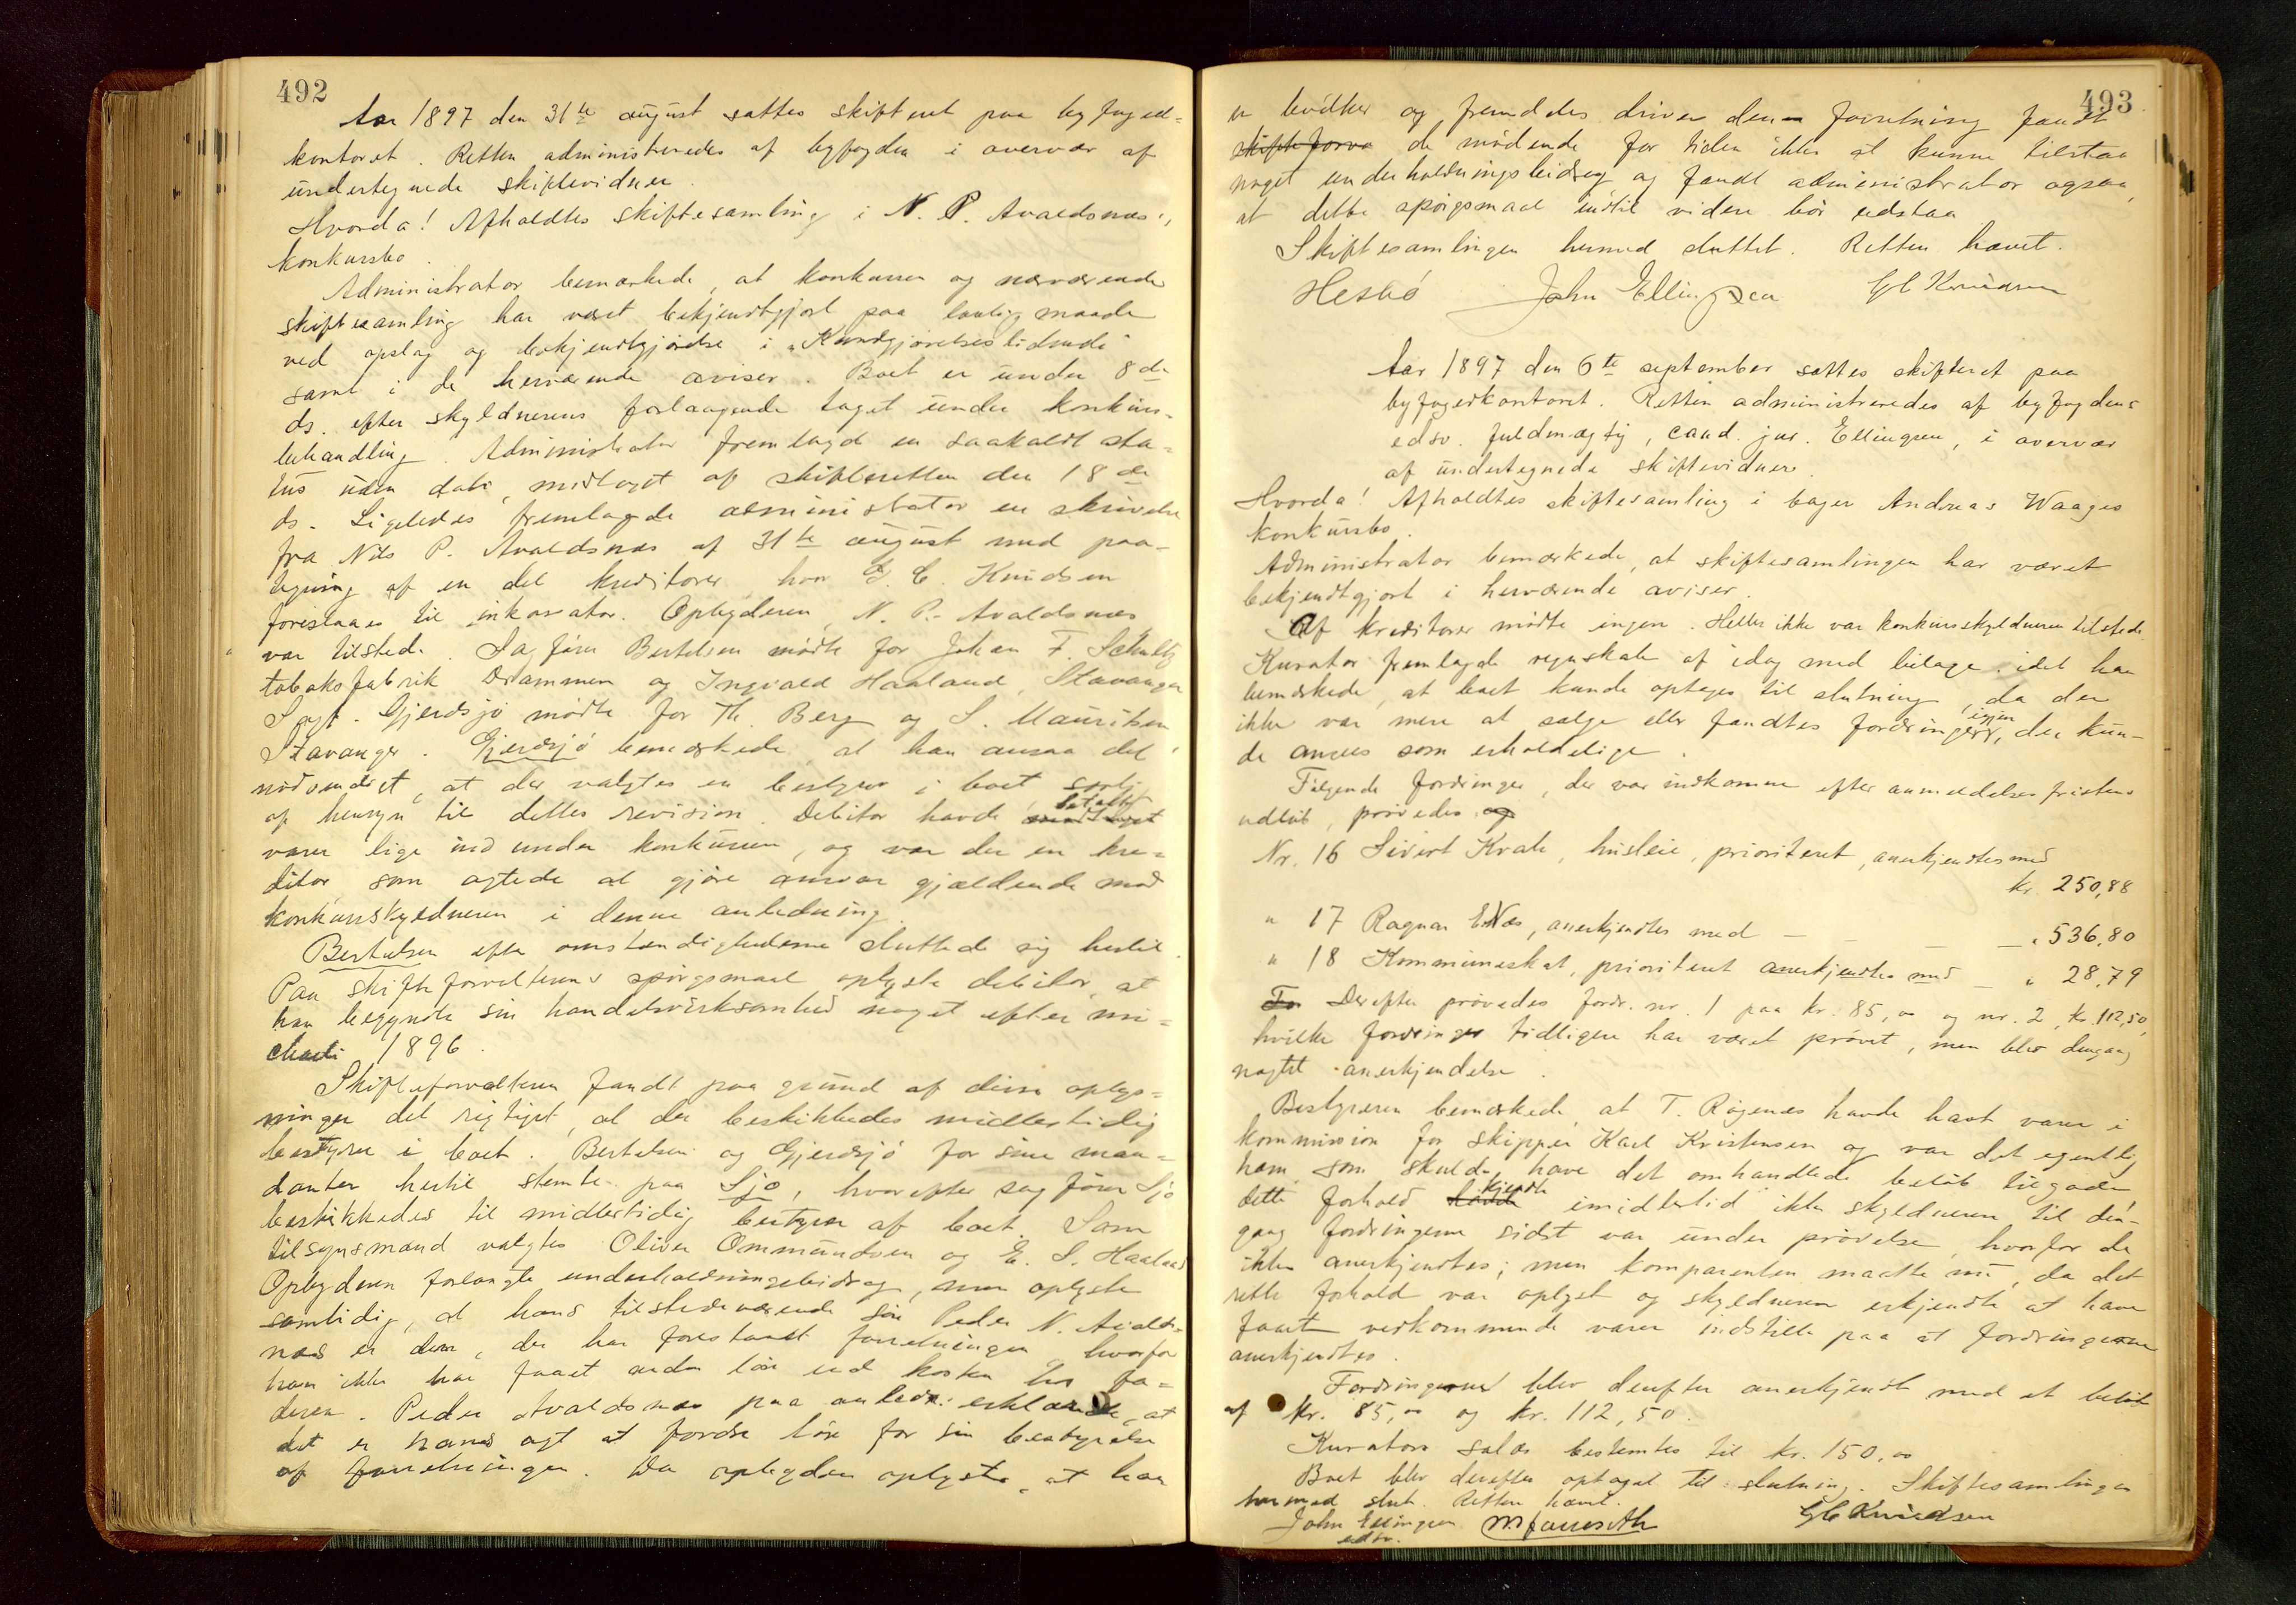 492
Aar 1897 den 31te august sattes skifteret paa byfoged-
kontoret. Retten administreredes af byfogden i overvær af
undertegnede skiftevidner.
Hvorda! Afholdtes skiftesamling i N. P. Avaldsnæs',
konkursbo.
Administrator bemærkede, at konkursen og nærværende
skiftesamling har været bekjendtgjort paa lovlig maade
ved opslag og bekjendtgjørelse i "Kundgjørelsestidende"
samt i de herværende aviser. Boet er under 8de
ds. efter skyldnerens forlangende taget under konkurs-
behandling. Administrator fremlagd en saakaldt sta-
tus uden dato, modtaget af skifteretten den 18de
ds. Ligeledes fremlagde administrator en skrivelse
fra Nils P. Avaldsnæs af 31te august med paa-
tegning af en del kreditorer hvor G. C. Knudsen
foreslaaes til inkassator. Opbyderen, N. P. Avaldsnæs
var tilstede. Sagfører Bertelsen mødte for Johan F. Schultz
tobaksfabrik Drammen og Ingvald Haaland, Stavanger
Sagf. Gjerdsjø mødte for Th. Berg og S. Mauritsen
Stavanger. Gjerdsjø bemærkede, at han ansaa det
nødvendigt, at der valgtes en bestyrer i boet
af hensyn til dettes revision. Debitor havde betalt
varer lige ind under konkursen, og var der en kre-
ditor, som agtede at gjøre ansvar gjældende mod
konkursskyldneren i denne anledning.
Bertelsen efter omstændighederne sluttede sig hertil.
Paa skifteforvalterens spørgsmaal oplyste debitor, at
han begyndte sin handelsvirksomhed noget efter mi-
chaeli 1896.
Skifteforvalteren fandt paa grund af disse oplys-
ninger det rigtigst, at der beskikkedes midlertidig
bestyrer i boet. Bertelsen og Gjerdsjø for sine man-
danter hertil stemte paa Sjo, hvorefter sagfører Sjo
beskikkedes til midlertidig bestyrer af boet. Som
tilsynsmænd valgtes Oliver Ommundsen og E. S. Haaland
Opbyderen forlangte underholdningsbidrag, men oplyste
samtidig, at hans tilstedeværende søn Peder N. Avalds-
næs er den, der har forestaaet forretningen hvorfor
han ikke har faaet anden løn end kosten hos fa-
deren. Peder Avaldsnæs paa anledn: erklærede, at
det er hans agt at fordre løn for sin bestyrelse
af forretningen. Da opbyderen oplyste, at han
493
er levdiker og fremdeles driver denne forretning fandt
skifteforva de mødende for tiden ikke at kunne tilstaa
noget underholdningsbidrag og fandt administrator ogsaa,
at dette spørgsmaal indtil videre bør udstaa
Skiftesamlingen hermed sluttet. Retten hævet.
Hesbø John Ellingsen G C Knudsen
Aar 1897 den 6te september sattes skifteret paa
byfogedkontoret. Retten administreredes af byfogdens
edsv. fuldmægtig, cand. jur. Ellingsen, i overvær
af undertegnede skiftevidner.
Hvorda! Afholdtes skiftesamling i bager Andreas Waages
konkursbo.
Administrator bemærkede, at skiftesamlingen har været
bekjendtgjort i herværende aviser.
Af kreditorer mødte ingen. Heller ikke var konkursskyldneren tilstede.
Kurator fremlagde regnskab af idag med bilage, idet han
bemærkede, at boet kunde optages til slutning, da der
ikke var mere at sælge eller fandtes fordringer igjen, der kun-
de ansees som erholdelige.
Følgende fordringer, der var indkomne efter anmeldelsesfristens
udløb, prøvedes og
Nr. 16 Sivert Krak, husleie, prioriteret, anerkjendtes med
kr. 250,88
" 17 Ragnar E Næs, anerkjendtes med — — — — " 536,80
" 18 Kommuneskat, prioriteret anerkjendtes med — " 28,79
Fo Derefter prøvedes fordr. nr. 1 paa kr. 85,00 og nr. 2, kr. 112,50,
hvilke fordringer tidligere har været prøvet, men blev dengang
nægtet anerkjendelse.
Bestyreren bemærkede, at T. Røgenæs havde havt varer i
kommission for skipper Karl Kristensen og var det egentlig
ham, som skulde have det omhandlede beløb tilgode,
dette forhold kjendte imidlertid ikke skyldneren til den-
gang fordringerne sidst var under prøvelse, hvorfor de
ikke anerkjendtes; men komparenten maatte nu, da det
rette forhold var oplyst og skyldneren erkjendte at have
faaet vedkommende varer indstille paa at fordringerne
anerkjendtes.
Fordringerne blev derefter anerkjendt med et beløb
af kr. 85,00 og kr. 112,50.
Kurators salær bestemtes til kr. 150,00
Boet blev derefter optaget til slutning. Skiftesamlingen
hermed slut. Retten hævet.
John Ellingsen G C Knudsen
edsv.